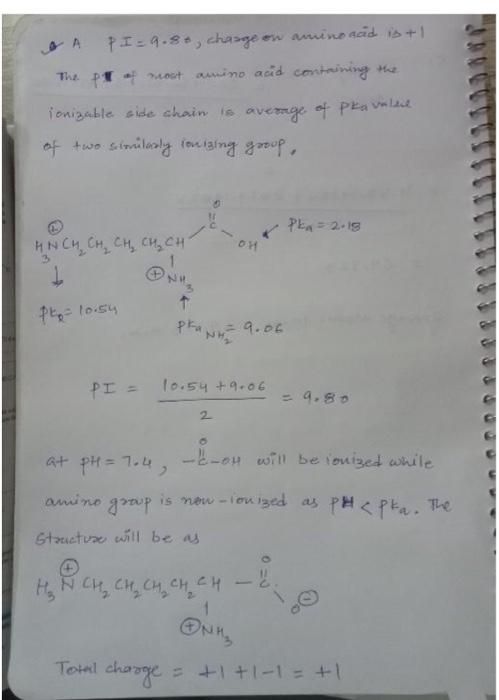 A PI = 9.80, charge on amino acid is +1
The PI of most amino acid containing the
ionizable side chain is average of Pka value
of two similarly ionizing group.
O
H3N⊕CH2CH2CH2CH2CH C OH ← Pka = 2.18
⊕NH3
PkR = 10.54
Pka NH2 = 9.06
PI = 10.54 + 9.06 / 2 = 9.80
at pH = 7.4, -C(=O)-OH will be ionized while
amino group is non-ionized as PH < Pka. The
Structure will be as
O
H3N⊕CH2CH2CH2CH2CH - C
O⊖
⊕NH3
Total charge = +1 +1 -1 = +1